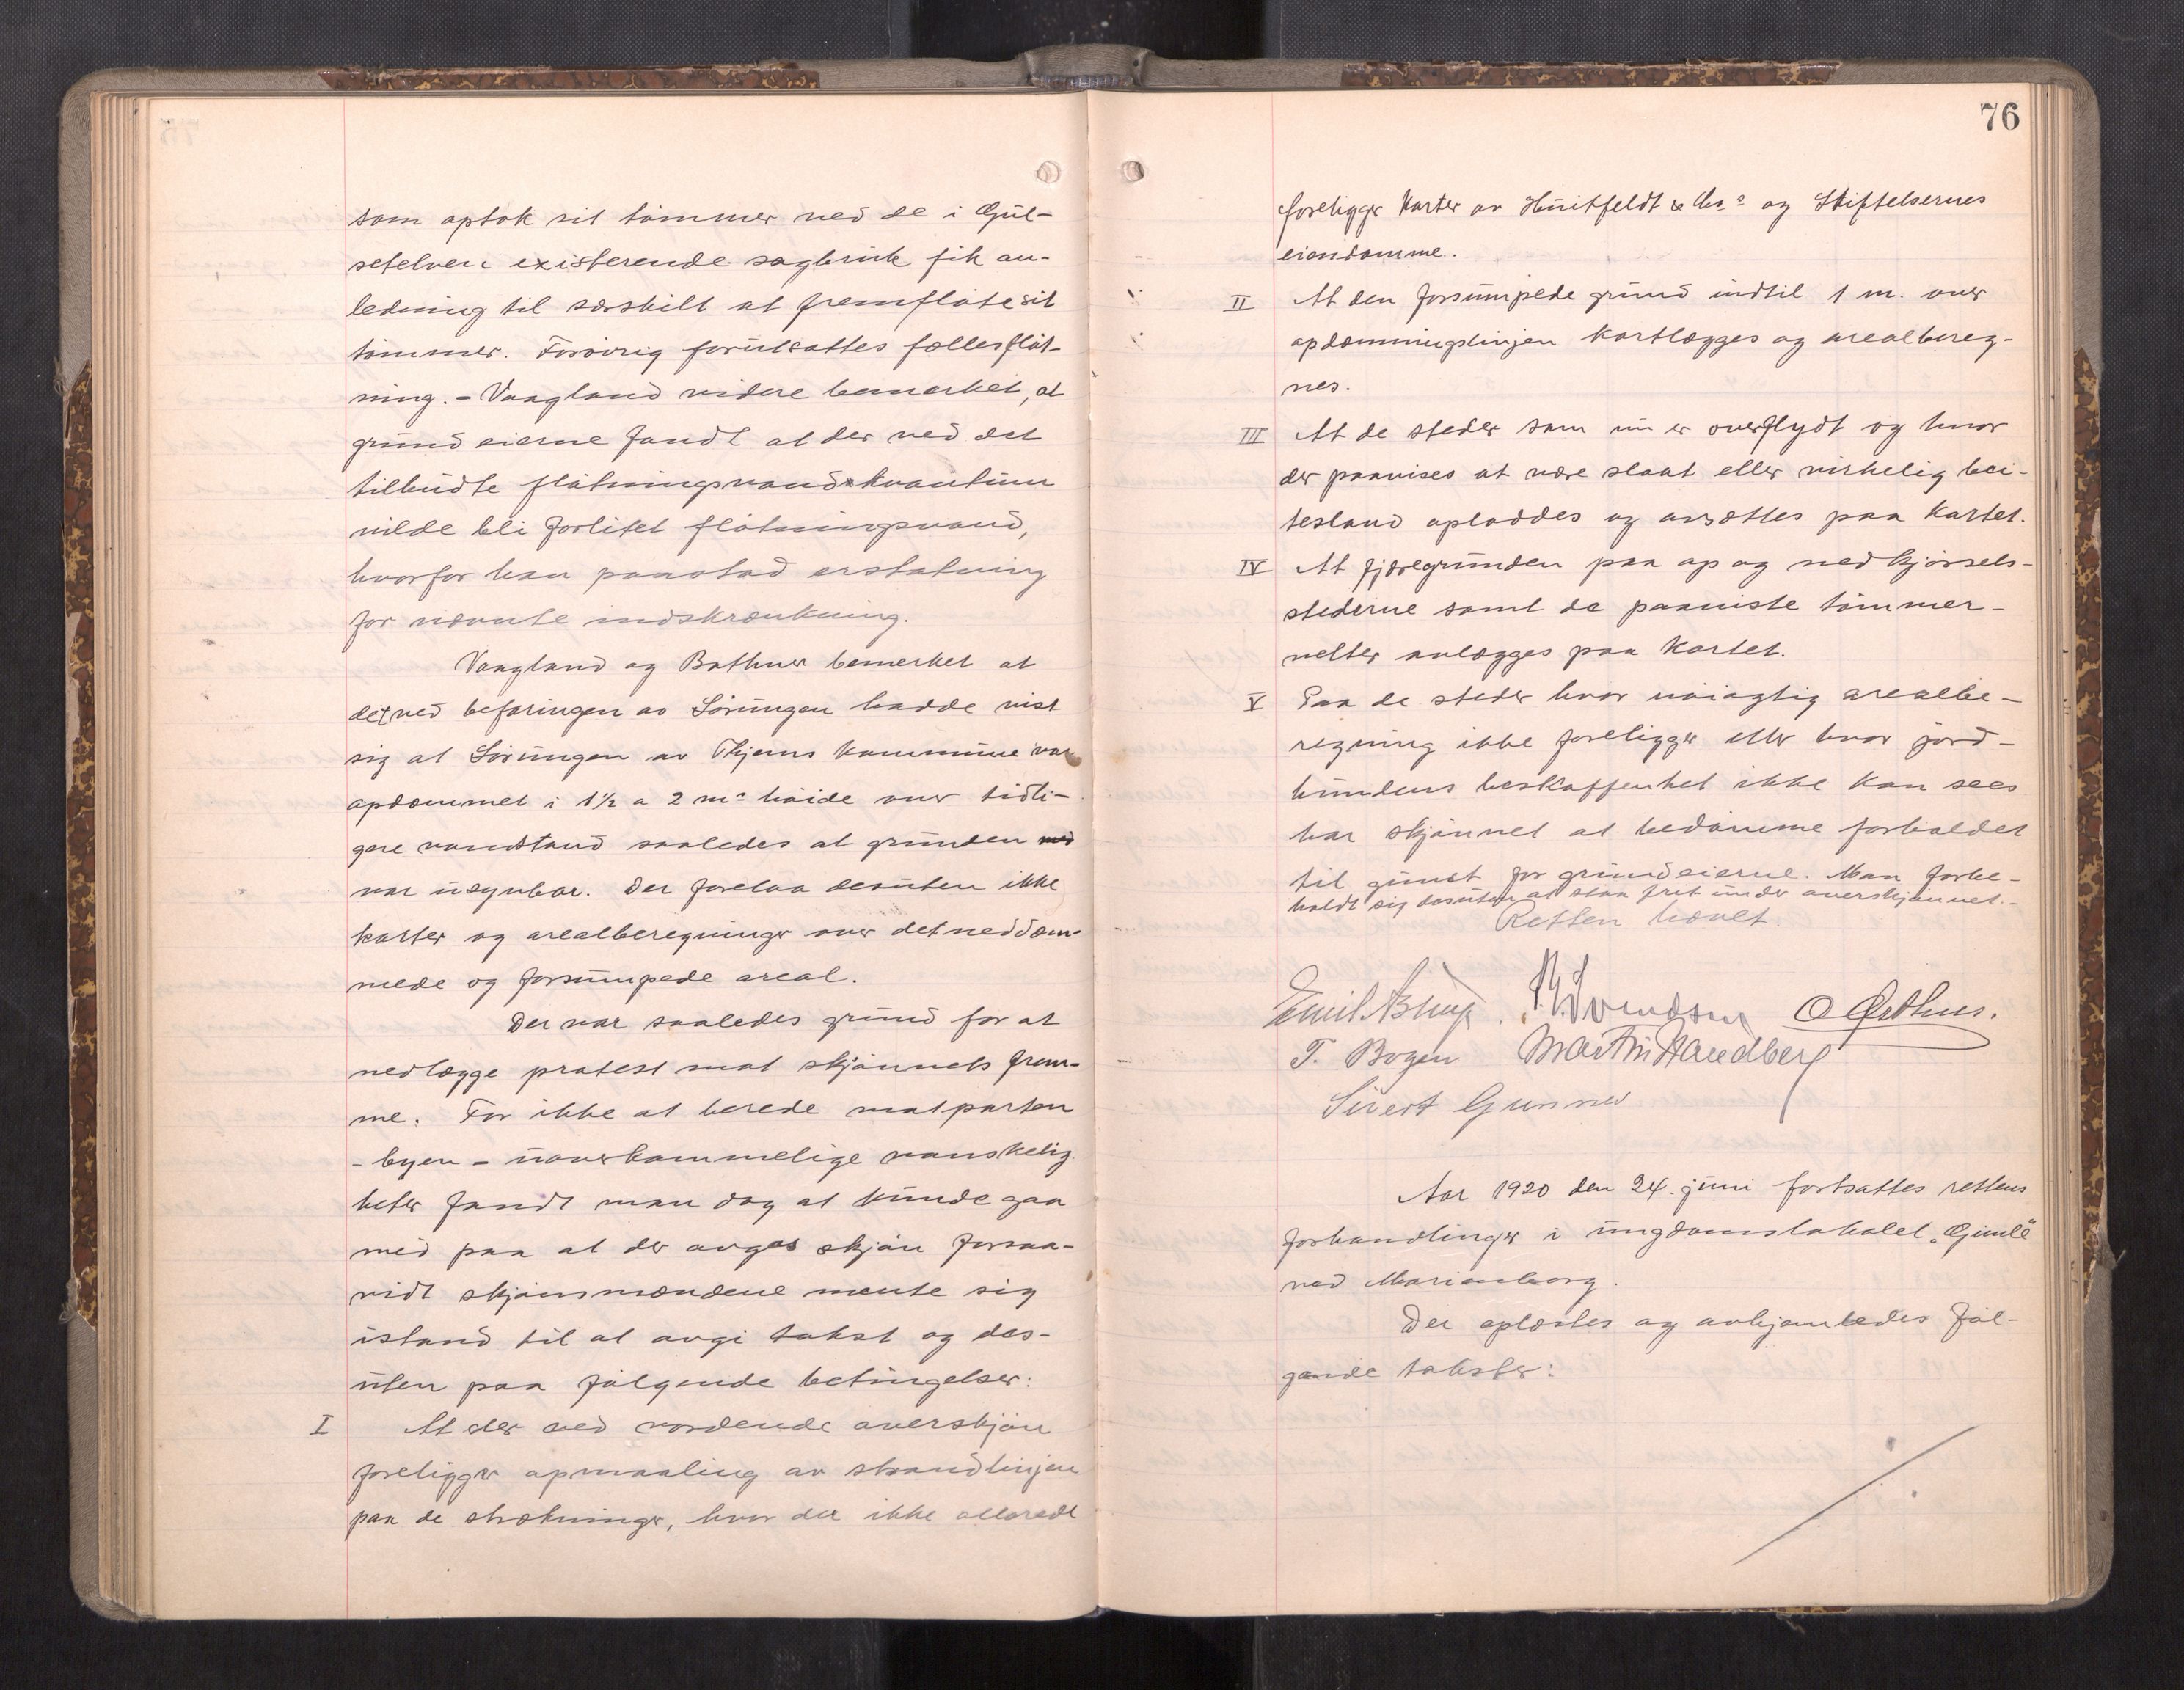 som optok sit tömmer ved de i Gul-
setelven existerende sagbruk fik an-
ledning til særskilt at fremflöte sit
tömmer. Forövrig forutsattes fællesflöt-
ning. - Vaagland videre bemerket, at
grundeierne fandt at der ved det
tilbudte flötningsvandskvantum
vilde bli forlitet flötningsvand,
hvorfor han paastod erstatning
for nævnte indskrænkning.
Vaagland og Bathner bemerket at
det ved befaringen av Lövungen hadde vist
sig at Löringen av Tkjems kommune var
opdæmmet i 1½ a 2 m's höide over tidli-
gere vandstand saaledes at grunden
var usynbar. Der forelaa desuten ikke
karter og arealberegninger over det neddæm-
mede og forsumpede areal.
Der var saaledes grund for at
nedlægge protest mot skjönnets frem-
me. For ikke at berede motparten
- byen - uoverkommelige vanskelig
heter fandt man dog at kunde gaa
med paa at der avgas skjön forsaa-
vidt skjönsmændene mente sig
istand til at avgi takst og des-
uten paa følgende betingelser:
I At der ved vordende overskjön
foreligger opmaaling av strandlinjen
paa de strækninger, hvor der ikke allerede
76
foreligger karter av Huitfeldt & Co's og Stiftelsernes
eiendomme.
II At den forsumpede grund indtil 1 m. over
opdæmningslinjen kartlægges og arealbereg-
nes.
III At de steder som nu er overflydt og hvor
der paavises at være slaat eller virkelig bei-
tesland oploddes og avsættes paa kartet.
IV At fjæregrunden paa op og nedkjörsels-
stederne samt de paaviste tömmer-
velter avlægges paa kartet.
V Paa de steder hvor nöiagtig arealbe-
regning ikke foreligger eller hvor jord-
bundens beskaffenhet ikke kan sees
har skjönnet at bedömme forholdet
til gunst for grundeierne. Man forbe-
holdt sig desuten at staa frit under overskjönnet.-
Retten hævet.
Emil Svendsen O Östhus.
T. Bogen Martin Sandberg
Sivert Gunnes
Aar 1920 den 24. juni fortsattes rettens
forhandlinger i ungdomslokalet "Gimle"
ved Marienborg.
Der oplæstes og avhjemledes föl-
gende takster: